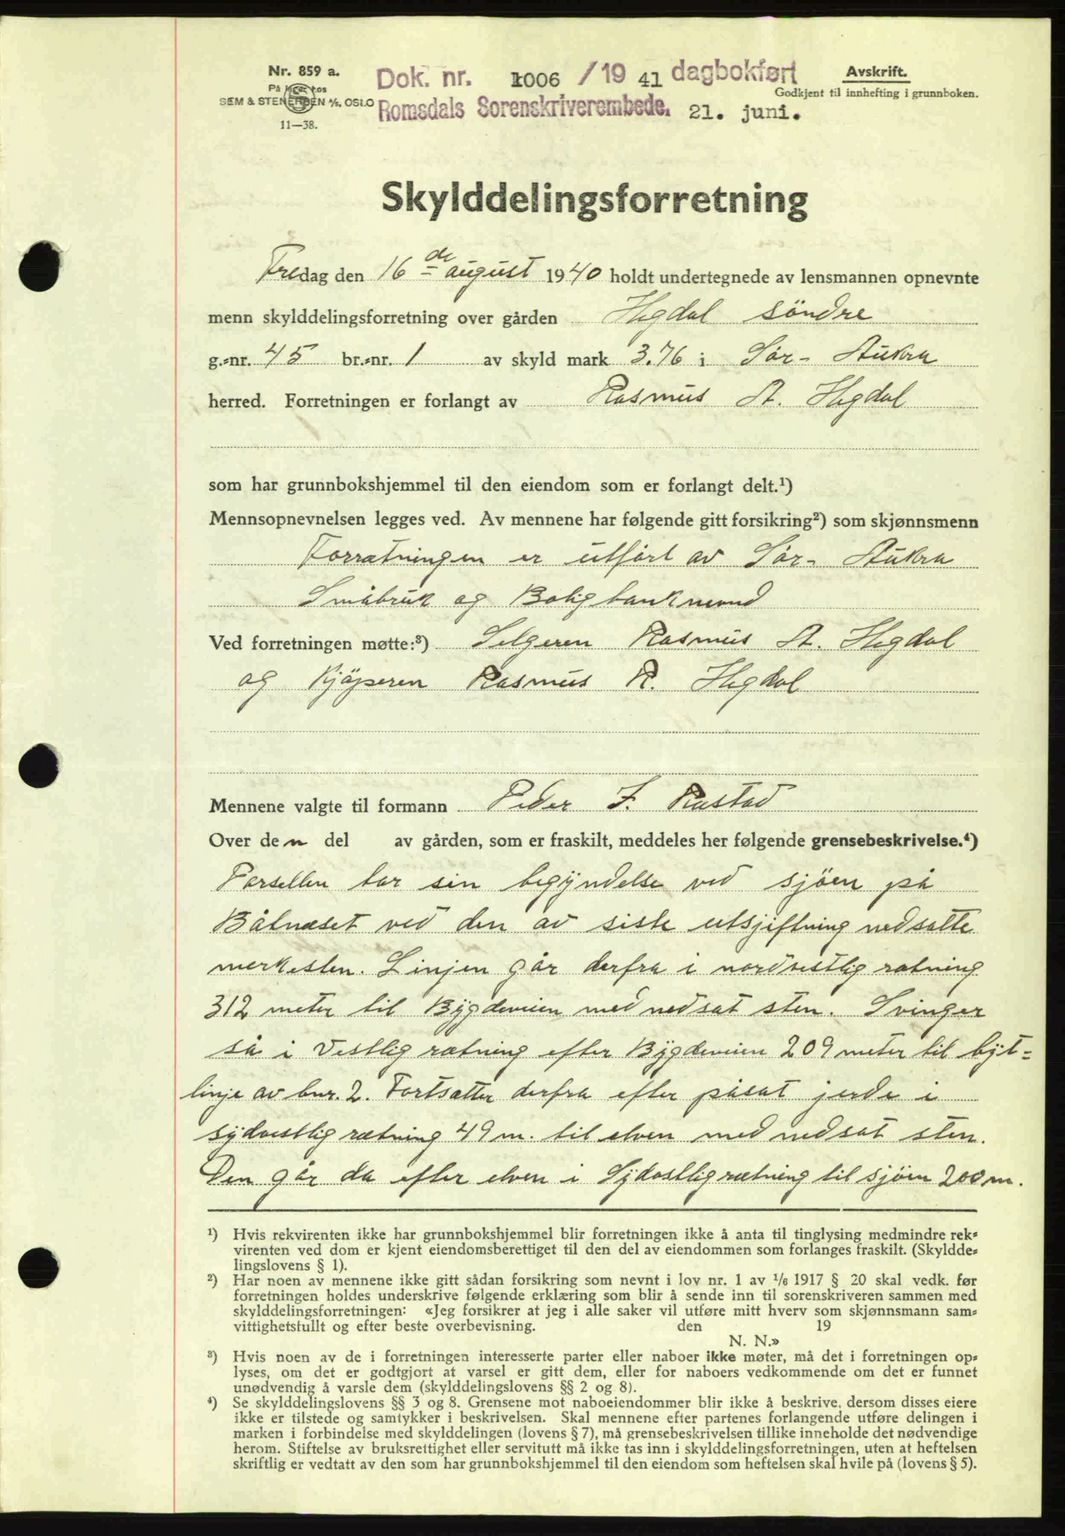 Nr. 859 a.
SEM & STENERSEN A/S, OSLO
11—38.
Dok. nr. 1006 /19 41 dagbokført
Romsdals Sorenskriverembede. 21. juni.
Avskrift.
Godkjent til innhefting i grunnboken.
Skylddelingsforretning
Fredag den 16de august 1940 holdt undertegnede av lensmannen opnevnte
menn skylddelingsforretning over gården Hegdal söndre
g.-nr. 45 br.-nr. 1 av skyld mark 3.76 i Sør-Aukra
herred. Forretningen er forlangt av Rasmus A. Hegdal
som har grunnbokshjemmel til den eiendom som er forlangt delt.¹)
Mennsopnevnelsen legges ved. Av mennene har følgende gitt forsikring²) som skjønnsmenn
Forrætningen er utført av Sør-Aukra
Småbruk og Boligbanknevnd
Ved forretningen møtte:³) Selgeren Rasmus A. Hegdal
og Kjøperen Rasmus R. Hegdal
Mennene valgte til formann Peder J. Rastad
Over den del av gården, som er fraskilt, meddeles her følgende grensebeskrivelse.⁴)
Parsellen tar sin begyndelse ved sjöen på
Båtnæset ved den av siste utsjiftning nedsatte
merkesten. Linjen går derfra i nordvestlig rætning
312 meter til Bygdeveien med nedsat sten. Svinger
så i vestlig rætning efter Bygdeveien 209 meter til byt-
linje av bnr. 2. Fortsætter derfra efter påsat jerde i
sydvestlig rætning 49 m. til elven med nedsat sten.
Den går da efter elven i Sydostlig rætning til sjöen 200 m.
¹) Hvis rekvirenten ikke har grunnbokshjemmel blir forretningen ikke å anta til tinglysing medmindre rek-
virenten ved dom er kjent eiendomsberettiget til den del av eiendommen som forlanges fraskilt. (Skyldde-
lingslovens § 1).
²) Har noen av mennene ikke gitt sådan forsikring som nevnt i lov nr. 1 av 1/6 1917 § 20 skal vedk. før
forretningen holdes underskrive følgende erklæring som blir å sende inn til sorenskriveren sammen med
skylddelingsforretningen: «Jeg forsikrer at jeg i alle saker vil utføre mitt hverv som skjønnsmann sam-
vittighetsfullt og efter beste overbevisning. den 19
N. N.»
³) Hvis noen av de i forretningen interesserte parter eller naboer ikke møter, må det i forretningen op-
lyses, om det er godtgjort at varsel er gitt dem, eller for naboers vedkommende om det er funnet
unødvendig å varsle dem (skylddelingslovens §§ 2 og 8).
⁴) Se skylddelingslovens §§ 3 og 8. Grensene mot naboeiendommer blir ikke å beskrive, dersom disses eiere
ikke er tilstede og samtykker i beskrivelsen. Skal mennene efter partenes forlangende utføre delingen i
marken i forbindelse med skylddelingen (lovens § 7), må grensebeskrivelsen tillike inneholde det nødvendige
herom. Stiftelse av bruksrettighet eller servitutt må ikke tas inn i skylddelingsforretningen, uten at heftelsen
skriftlig er vedtatt av den som har grunnbokshjemmel til den eiendom som heftelsen skal hvile på (lovens § 5).